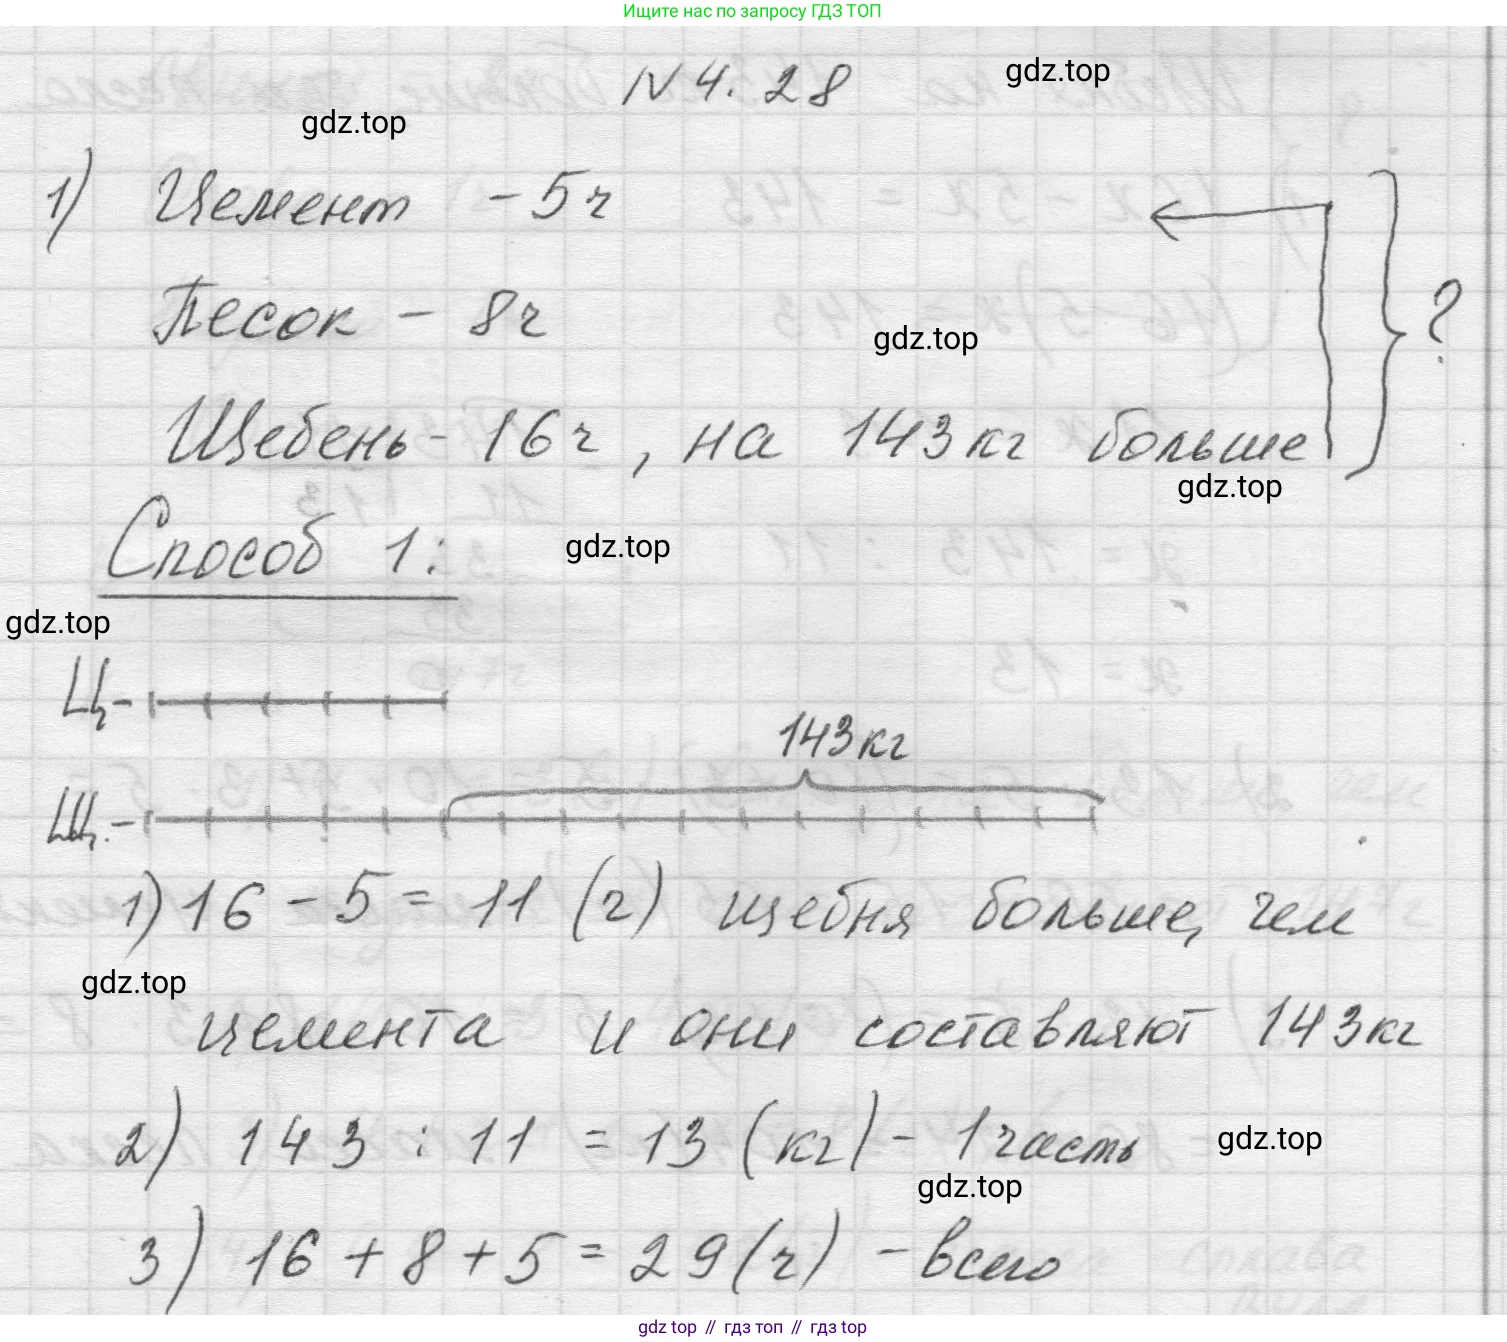 Ищите нас по запросу ГДЗ ТОП
N 4.28
gdz.top
gdz.top
1) Цемент - 5 ч
Песок - 8 ч
?
gdz.top
Щебень - 16 ч, на 143 кг больше
gdz.top
Способ 1:
gdz.top
gdz.top
Ц -
143 кг
Щ. -
1) 16 - 5 = 11 (ч) щебня больше, чем
gdz.top
цемента и они составляют 143 кг
2) 143 : 11 = 13 (кг) - 1 часть
gdz.top
gdz.top
3) 16 + 8 + 5 = 29 (ч) - всего
gdz top // гдз топ // гдз top